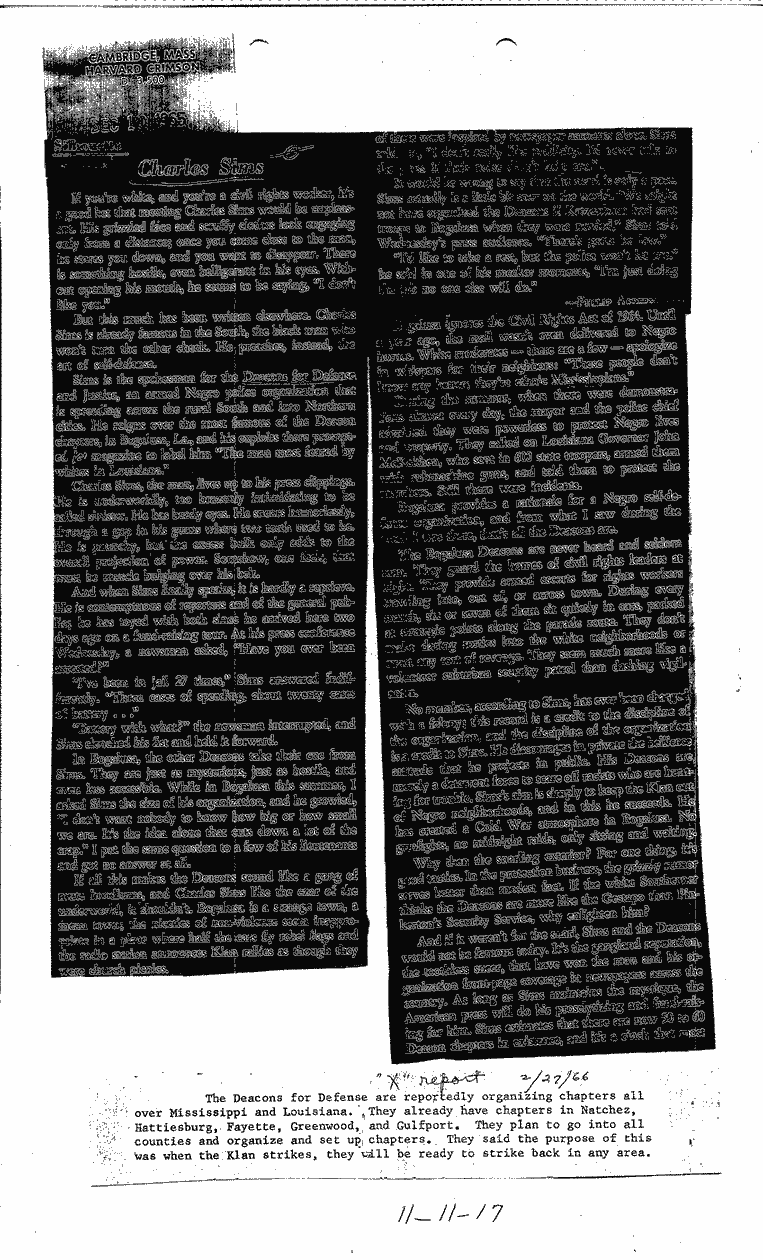 CAMBRIDGE, MASS
HARVARD CRIMSON
D. 3,500
SEC 10 1965
Silhouette
Charles Sims
If you're white, and you're a civil rights worker, it's
a good bet that meeting Charles Sims would be unpleas-
ant. His grizzled face and scruffy clothes look engaging
only from a distance; once you come close to the man,
he stares you down, and you want to disappear. There
is something hostile, even belligerant in his eyes. With-
out opening his mouth, he seems to be saying, "I don't
like you."
But this much has been written elsewhere. Charles
Sims is already famous in the South, the black man who
won't turn the other cheek. He preaches, instead, the
art of self-defense.
Sims is the spokesman for the Deacons for Defense
and Justice, an armed Negro police organization that
is spreading across the rural South and into Northern
cities. He reigns over the most famous of the Deacon
chapters, in Bogalusa, La., and his exploits there prompt-
ed Jet magazine to label him "The man most feared by
whites in Louisiana."
Charles Sims, the man, lives up to his press clippings.
He is underworldly, too brazenly intimidating to be
called sinister. He has beady eyes. He sneers humorlessly,
through a gap in his gums where two teeth used to be.
He is paunchy, but the excess bulk only adds to the
overall projection of power. Somehow, one feels, that
must be muscle bulging over his belt.
And when Sims finally speaks, it is hardly a reprieve.
He is contemptuous of reporters and of the general pub-
lic; he has toyed with both since he arrived here two
days ago on a fund-raising tour. At his press conference
Wednesday, a newsman asked, "Have you ever been
arrested?"
"I've been in jail 27 times," Sims answered indif-
ferently. "Three cases of spending, about twenty cases
of battery . . ."
"Battery with what?" the newsman interrupted, and
Sims clenched his fist and held it forward.
In Bogalusa, the other Deacons take their cue from
Sims. They are just as mysterious, just as hostile, and
even less accessible. While in Bogalusa this summer, I
asked Sims the size of his organization, and he growled,
"I don't want nobody to know how big or how small
we are. It's the idea alone that cuts down a lot of the
crap." I put the same question to a few of his lieutenants
and got no answer at all.
If all this makes the Deacons sound like a gang of
mute hoodlums, and Charles Sims like the czar of the
underworld, it shouldn't. Bogalusa is a strange town, a
mean town; the niceties of non-violence seem inappro-
priate in a place where half the cars fly rebel flags and
the radio station announces Klan rallies as though they
were church picnics.
of them were inspired by newspaper stories about Sims
It would be wrong to say that the snarl is only a pose.
Sims actually is a little bit sore at the world. "We might
not have organized the Deacons if
troops to Bogalusa when they were needed," Sims told
Wednesday's press audience. "There's gotta be law."
"I'd like to take a rest, but the police won't let me"
he said in one of his meeker moments, "I'm just doing
the job no one else will do."
ignores the Civil Rights Act of 1964. Until
a year ago, the mail wasn't even delivered to Negro
homes. White moderates — there are a few — apologize
in whispers for their neighbors: "These people don't
know any better; they're ethnic Mississippians."
During the summer, when there were demonstra-
tions almost every day, the mayor and the police chief
admitted they were powerless to protect Negro lives
and property. They called on Louisiana Governor John
McKeithen, who sent in 600 state troopers, armed them
with submachine guns, and told them to protect the
marchers. Still there were incidents.
Bogalusa provides a rationale for a Negro self-de-
fense organization, and from what I saw during the
The Bogalusa Deacons are never heard and seldom
seen. They guard the homes of civil rights leaders at
night. They provide armed escorts for rights workers
travelling late, out of, or across town. During every
march, six or seven of them sit quietly in cars, parked
at strategic points along the parade route. They don't
make daring forties into the white neighborhoods or
exert any sort of revenge. They seem much more like a
volunteer suburban security patrol than dashing vigil-
antes.
No member, according to Sims, has ever been charged
with a felony; this record is a credit to the discipline of
the organization, and the discipline of the organization
is a credit to Sims. He discourages in private the belligerent
attitude that he projects in public. His Deacons are
merely a deterrent force to scare off racists who are hunt-
ing for trouble. Sims's aim is simply to keep the Klan out
of Negro neighborhoods, and in this he succeeds. He
has created a Cold War atmosphere in Bogalusa. No
gunfights, no midnight raids, only sitting and waiting.
Why then the snarling exterior? For one thing, it's
good tactics. In the protection business, the grizzly rumor
serves better than modest fact. If the white Southerner
thinks the Deacons are more like the Gestapo than Pin-
kerton's Security Service, why enlighten him?
And if it weren't for the snarl, Sims and the Deacons
would not be famous today. It's the gangland reputation,
the toothless sneer, that have won the man and his or-
ganization front-page coverage in newspapers across the
country. As long as Sims maintains the mystique, the
American press will do his proselytizing and fund-rais-
ing for him. Sims estimates that there are now 50 to 60
Deacon chapters in existence, and it's a cinch that most
"X" report 2/27/66
The Deacons for Defense are reportedly organizing chapters all
over Mississippi and Louisiana. They already have chapters in Natchez,
Hattiesburg, Fayette, Greenwood, and Gulfport. They plan to go into all
counties and organize and set up chapters. They said the purpose of this
was when the Klan strikes, they will be ready to strike back in any area.
11-11-17